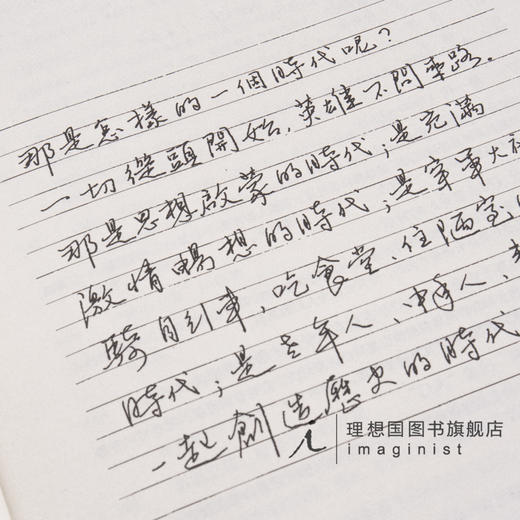 那是怎樣的一個時代呢？
一切從頭開始，英雄不問來路。
那是思想啟蒙的時代；是充滿
激情暢想的時代；是官軍大
騎自行車、吃食堂、住陋室
時代；是老年人、中年人、
一起創造歷史的時代
理想国图书旗舰店
imaginist